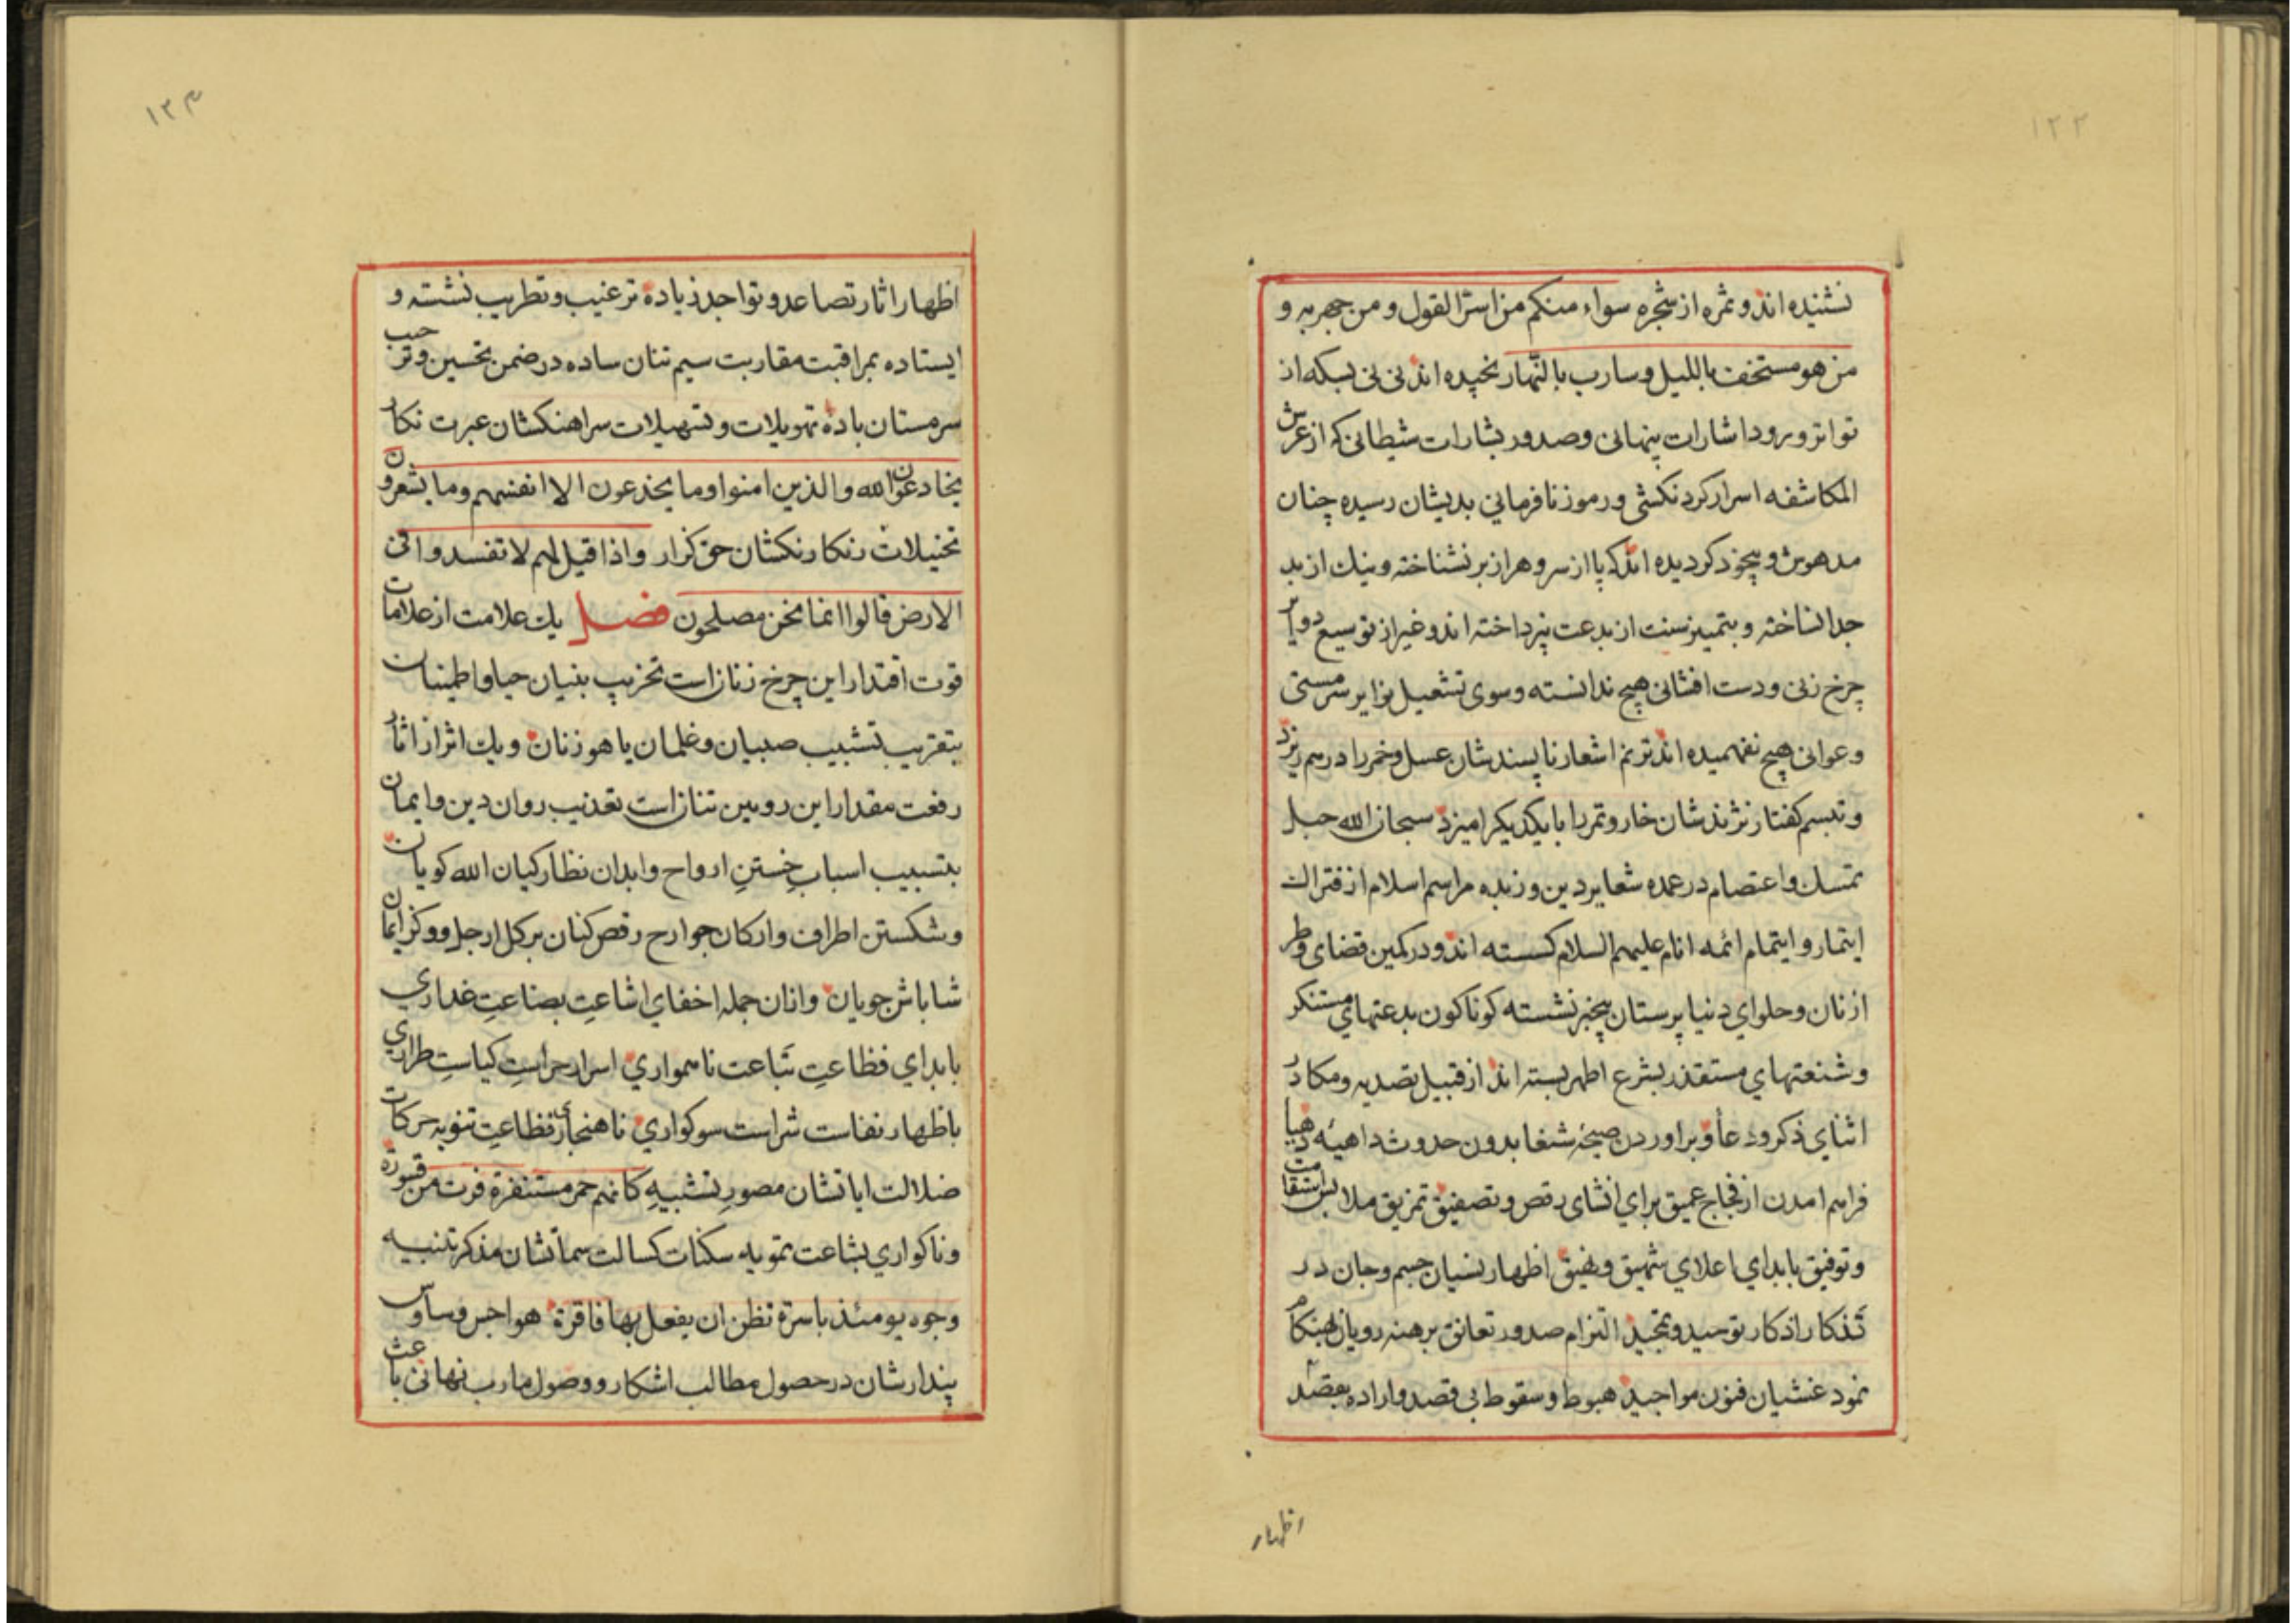 ١٢٢
نشنیده اند و ثمره از شجره سواء منکم من اسرّ القول و من جهر به و
من هو مستخف باللیل و سارب بالنّهار نخپده اند نی نی بسکه از
تواتر ورود اشارات پنهانی و صدور بشارات شیطانی که از عرش
المکاشفه اسرار کردنکشی و رموز نافرمانی بدیشان رسیده چنان
مدهوش و بیخود کردیده اند که پا از سر و هر از بر نشناخته و نیك از بد
جدا نساخته و بتمییز سنت از بدعت نپرداخته اند و غیر از توسیع دوایر
چرخ زنی و دست افشانی هیچ ندانسته و سوی تشعیل نوایر سرمستی
و عوانی هیچ نفهمیده اند ترنم اشعار ناپسندشان عسل و خمر را در هم ریزد
و تبسم کفتار نژندشان خار و تمر را با یکدیکر امیزد سبحان الله حبل
تمسك و اعتصام در عمده شعایر دین و زبده مراسم اسلام از فتراك
ایتمار و ایتمام ائمه انام علیهم السلام کسسته اند و در کمین قضای وطر
از نان و حلوای دنیا پرستان بیخبر نشسته کوناکون بدعتهای مستنکر
و شنعتهای مستقذر بشرع اطهر بسته اند از قبیل تصدیه و مکا در
اثنای ذکر و دعا و براوردن صیحهٔ شغبا بدون حدوث داهیه دهیا
فراهم امدن از فجاج عمیق برای انشای رقص و تصفیق تمزیق ملابس استقامت
و توفیق بابدای اعلای شهیق و نهیق اظهار نسیان جسم و جان در
تذکار اذکار توحید و تمجید التزام صدور تعانق برهنه رویان هنکام
نمود غشیان فنون مواجید هبوط و سقوط بی قصد و اراده بقصد
اظهار
١٢٣
اظهار اثار تصاعد و تواجد زیاده ترغیب و تطریب نشسته و
ایستاده بمراقبت مقاربت سیم تنان ساده در ضمن تحسین و ترحیب
سرمستان باده تهویلات و تسهیلات سراهنکشان عبرت نکار
یخادعون الله والذین امنوا وما یخدعون الا انفسهم وما یشعرون
تخییلات رنکارنکشان حق کزار واذا قیل لهم لا تفسدوا فی
الارض قالوا انما نحن مصلحون فصل یك علامت از علامات
قوت اقتدار این چرخ زنان است تخریب بنیان حیا و اطمینان
بتقریب تشبیب صبیان و غلمان یاهو زنان و یك اثر از اثار
رفعت مقدار این رویین تنان است تعذیب روان دین و ایمان
بتسبیب اسباب خستن ارواح و ابدان نظارکیان الله کویان
و شکستن اطراف و ارکان جوارح رقص کنان بر کل ارجل و وکز ایمان
شاباش جویان و ازان جمله اخفای اشاعت بضاعت غداری
بابدای فظاعت تباعت ناهمواری اسرار حراست کیاست طراری
باظهار نفاست شراست سوکواری ناهنجاری فظاعت تنویه حرکات
ضلالت ایاتشان مصور تشبیه کانهم حمر مستنفرة فرت من قسورة
و ناکواری بشاعت تمویه سکنات کسالت سماتشان مذکر تنبیه
وجوه یومئذ باسرة تظن ان یفعل بها فاقرة هواجس وساوس
پندارشان در حصول مطالب اشکار و وصول مارب نهانی باعث